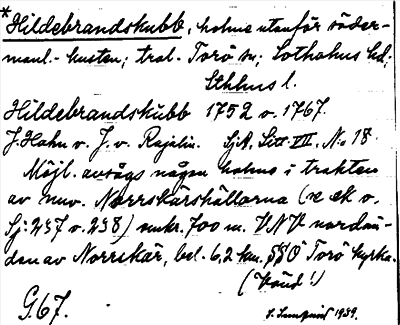 *Hildebrandskubb, holme utanför söder-
manl.-kusten; trol. Torö sn; Sotholms hd;
Sthlms l.
Hildebrandskubb 1752 o. 1767.
J. Hahn o. J. v. Rajalin. SjA. Litt. VII. No 18
Möjl. avsågs någon holme i trakten
av nuv. Norrskärshällarna (se ek o.
Sj: 237 o. 238) omkr. 700 m. VNV nordän-
den av Norrskär, bel. 6,2 km. SSÖ Torö kyrka.
(Vänd!)
G67. 1939.